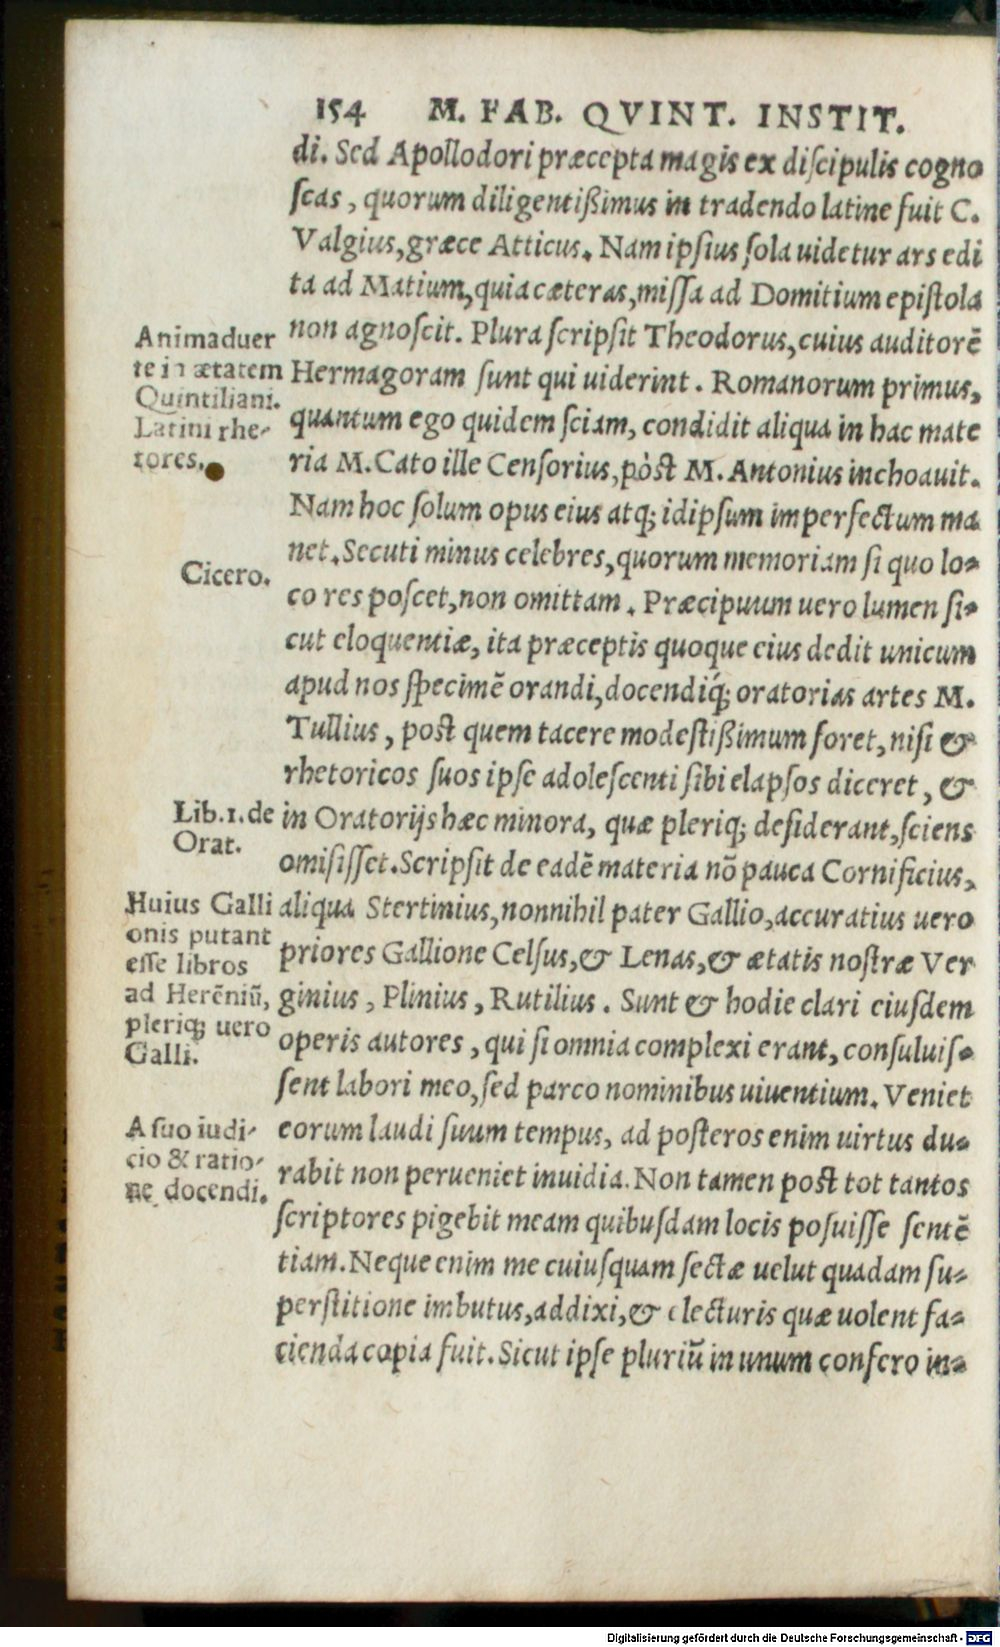 154 M. FAB. QVINT. INSTIT.
di. Sed Apollodori præcepta magis ex diſcipulis cogno
ſcas, quorum diligentißimus in tradendo latine fuit C.
Valgius, græce Atticus. Nam ipſius ſola uidetur ars edi
ta ad Matium, quia cæteras, miſſa ad Domitium epiſtola
non agnoſcit. Plura ſcripſit Theodorus, cuius auditorē
Hermagoram ſunt qui uiderint. Romanorum primus,
quantum ego quidem ſciam, condidit aliqua in hac mate
ria M. Cato ille Cenſorius, pòst M. Antonius inchoauit.
Nam hoc ſolum opus eius atq; idipſum imperfectum ma
net. Secuti minus celebres, quorum memoriam ſi quo lo-
co res poſcet, non omittam. Præcipuum uero lumen ſi-
cut eloquentiæ, ita præceptis quoque eius dedit unicum
apud nos ſpecimē orandi, docendiq́; oratorias artes M.
Tullius, post quem tacere modeſtißimum foret, niſi &
rhetoricos ſuos ipſe adoleſcenti ſibi elapſos diceret, &
in Oratorijs hæc minora, quæ pleriq; deſiderant, ſciens
omiſiſſet. Scripſit de eadē materia nō pauca Cornificius,
aliqua Stertinius, nonnihil pater Gallio, accuratius uero
priores Gallione Celſus, & Lenas, & ætatis noſtræ Ver
ginius, Plinius, Rutilius. Sunt & hodie clari eiuſdem
operis autores, qui ſi omnia complexi erant, conſuluiſ-
ſent labori meo, ſed parco nominibus uiuentium. Veniet
eorum laudi ſuum tempus, ad poſteros enim uirtus du-
rabit non perueniet inuidia. Non tamen post tot tantos
ſcriptores pigebit meam quibuſdam locis poſuiſſe ſentē
tiam. Neque enim me cuiuſquam ſectæ uelut quadam ſu-
perſtitione imbutus, addixi, & electuris quæ uolent fa-
cienda copia fuit. Sicut ipſe pluriū in unum confero in-
Animaduer
te in ætatem
Quintiliani.
Latini rhe-
tores.
Cicero.
Lib. 1. de
Orat.
Huius Galli
onis putant
eſſe libros
ad Herēniū,
pleriq; uero
Galli.
A ſuo iudi-
cio & ratio-
ne docendi.
Digitalisierung gefördert durch die Deutsche Forschungsgemeinschaft - DFG